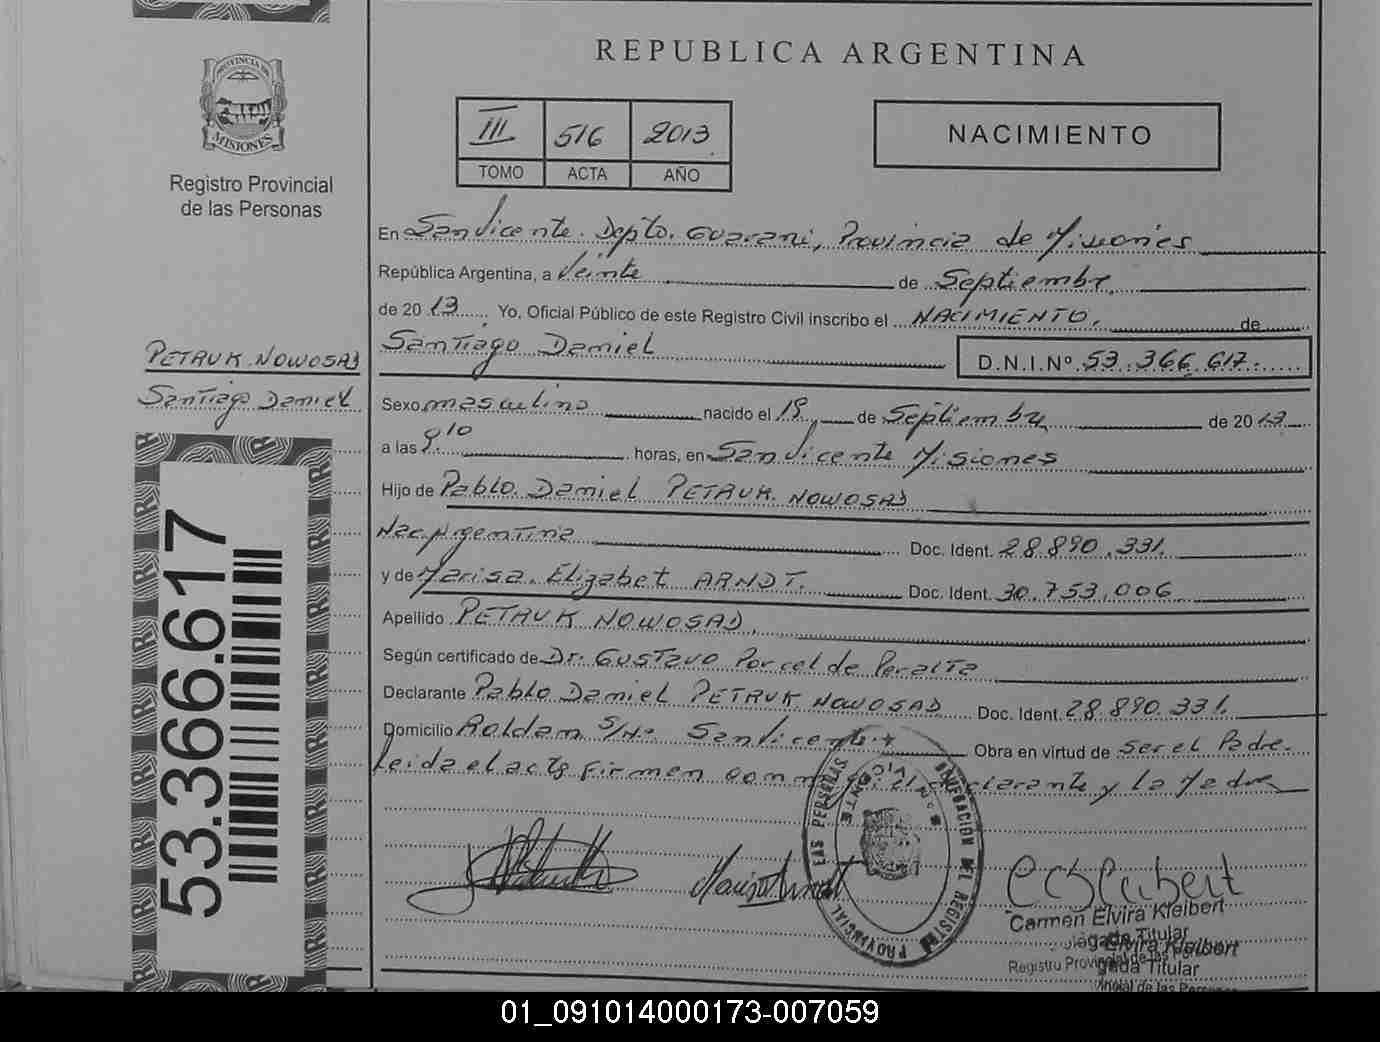 REPUBLICA ARGENTINA
PROVINCIA DE
MISIONES
Registro Provincial
de las Personas
III 516 2013
TOMO ACTA AÑO
NACIMIENTO
En San Vicente. Dpto. Guarani, Provincia de Misiones
República Argentina, a Veinte de Septiembre
de 2013 Yo, Oficial Público de este Registro Civil inscribo el NACIMIENTO. de
Santiago Daniel D.N.I.Nº 53.366.617.
PETRUK NOWOSAD
Santiago Daniel
Sexo masculino nacido el 19 de Septiembre de 2013
a las 9.10 horas, en San Vicente Misiones
Hijo de Pablo Daniel PETRUK NOWOSAD
Nac. Argentina Doc. Ident. 28.890.331
y de Marisa Elizabet ARNDT. Doc. Ident. 30.753.006
Apellido PETRUK NOWOSAD
Según certificado de Dr. Gustavo Porcel de Peralta
Declarante Pablo Daniel PETRUK NOWOSAD Doc. Ident. 28.890.331
Domicilio Roldan S/Nº San Vicente Obra en virtud de ser el Padre.
Leida el acta firman conmigo el declarante y la Madre
53.366.617
PROVINCIAL DE LAS PERSONAS
Marisa Arndt
Carmen Elvira Kleibert
Delegada Titular
Registro Provincial de las Personas
Elvira Kleibert
gada Titular
vincial de las Personas
01_091014000173-007059